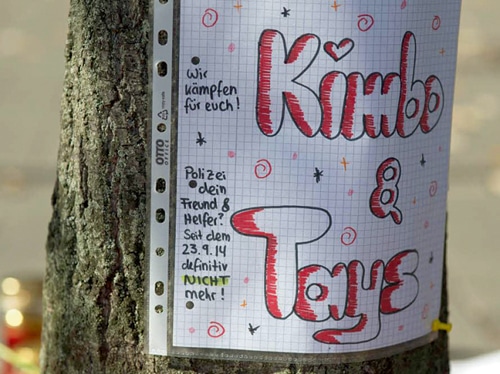 Kimbo
&
Tays
Wir
kämpfen
für euch!
Polizei
dein
Freund &
Helfer?
Seit dem
23.9.14
definitiv
NICHT
mehr!
OTTO
OFFICE